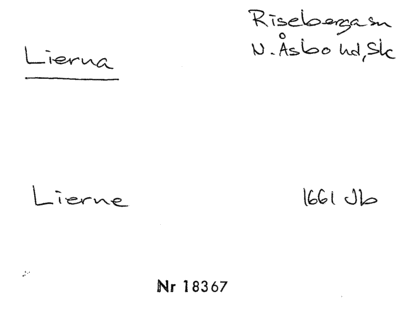 Riseberga sn
Lierna
N. Åsbo hd, Sk
Lierne 1661 Jb
Nr 18367